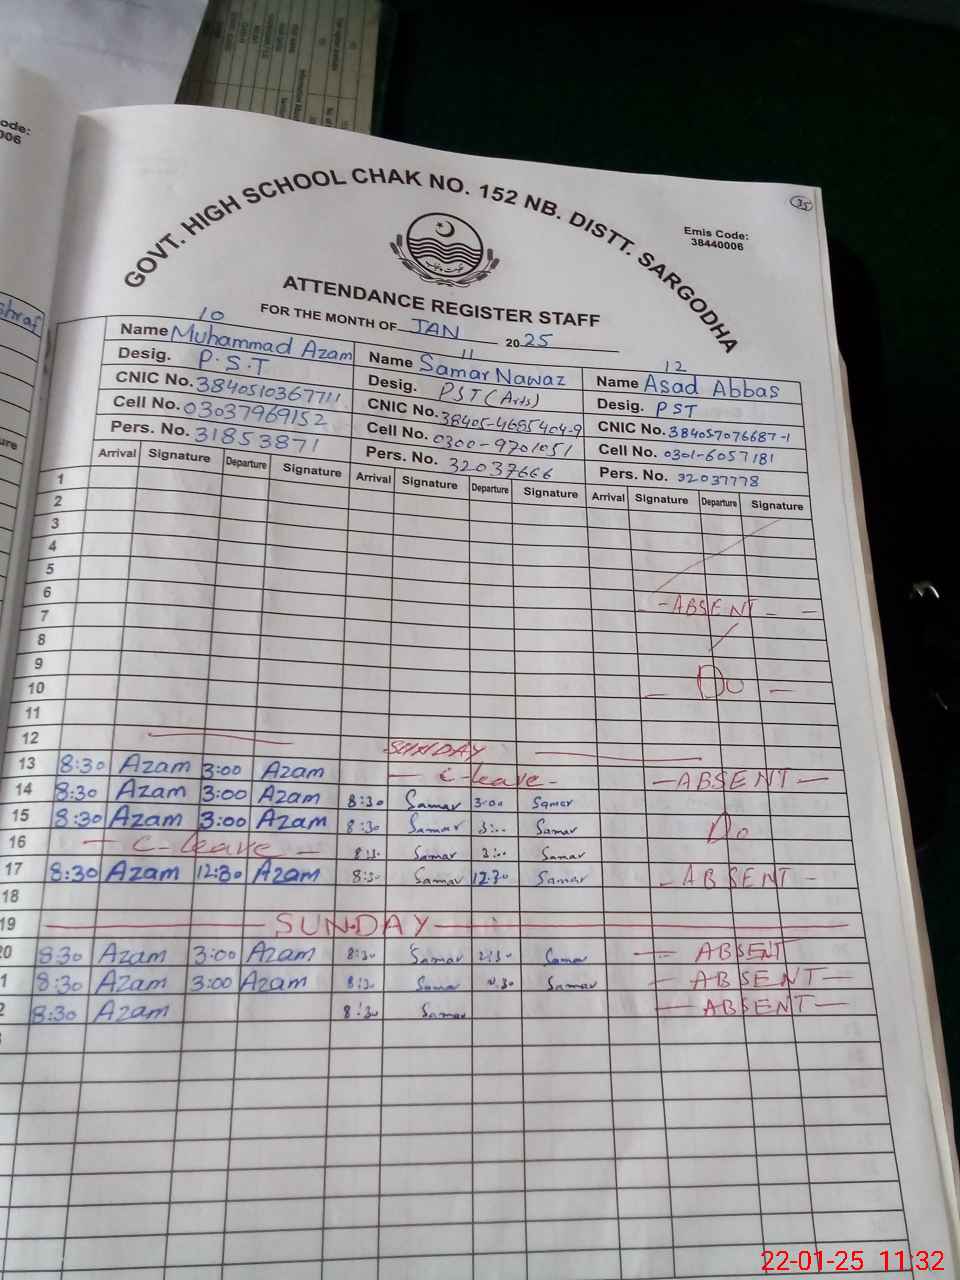 ode:
006
35
GOVT. HIGH SCHOOL CHAK NO. 152 NB. DISTT. SARGODHA
Emis Code:
38440006
ATTENDANCE REGISTER STAFF
FOR THE MONTH OF JAN 2025
shraf
10 11 12
Name Muhammad Azam Name Samar Nawaz Name Asad Abbas
Desig. P.S.T Desig. PST (Arts) Desig. PST
CNIC No. 3840510367711 CNIC No. 38405-4685404-9 CNIC No. 384057076687-1
Cell No. 03037969152 Cell No. 0300-9701051 Cell No. 0301-6057181
Pers. No. 31853871 Pers. No. 32037666 Pers. No. 32037778
Arrival Signature Departure Signature Arrival Signature Departure Signature Arrival Signature Departure Signature
1
2
3
4
5
6 - ABSENT - -
7
8
9
10 - Do -
11
12 SUNDAY
13 8:30 Azam 3:00 Azam - C-leave - - ABSENT -
14 8:30 Azam 3:00 Azam 8:30 Samar 3:00 Samar
15 8:30 Azam 3:00 Azam 8:30 Samar 3:00 Samar Do
16 - C-leave - 8:30 Samar 3:00 Samar
17 8:30 Azam 12:30 Azam 8:30 Samar 12:30 Samar - ABSENT -
18
19 SUNDAY
20 8:30 Azam 3:00 Azam 8:30 Samar Samar - ABSENT
1 8:30 Azam 3:00 Azam 8:30 Samar Samar - ABSENT -
2 8:30 Azam 8:30 Samar - ABSENT -
22-01-25 11:32